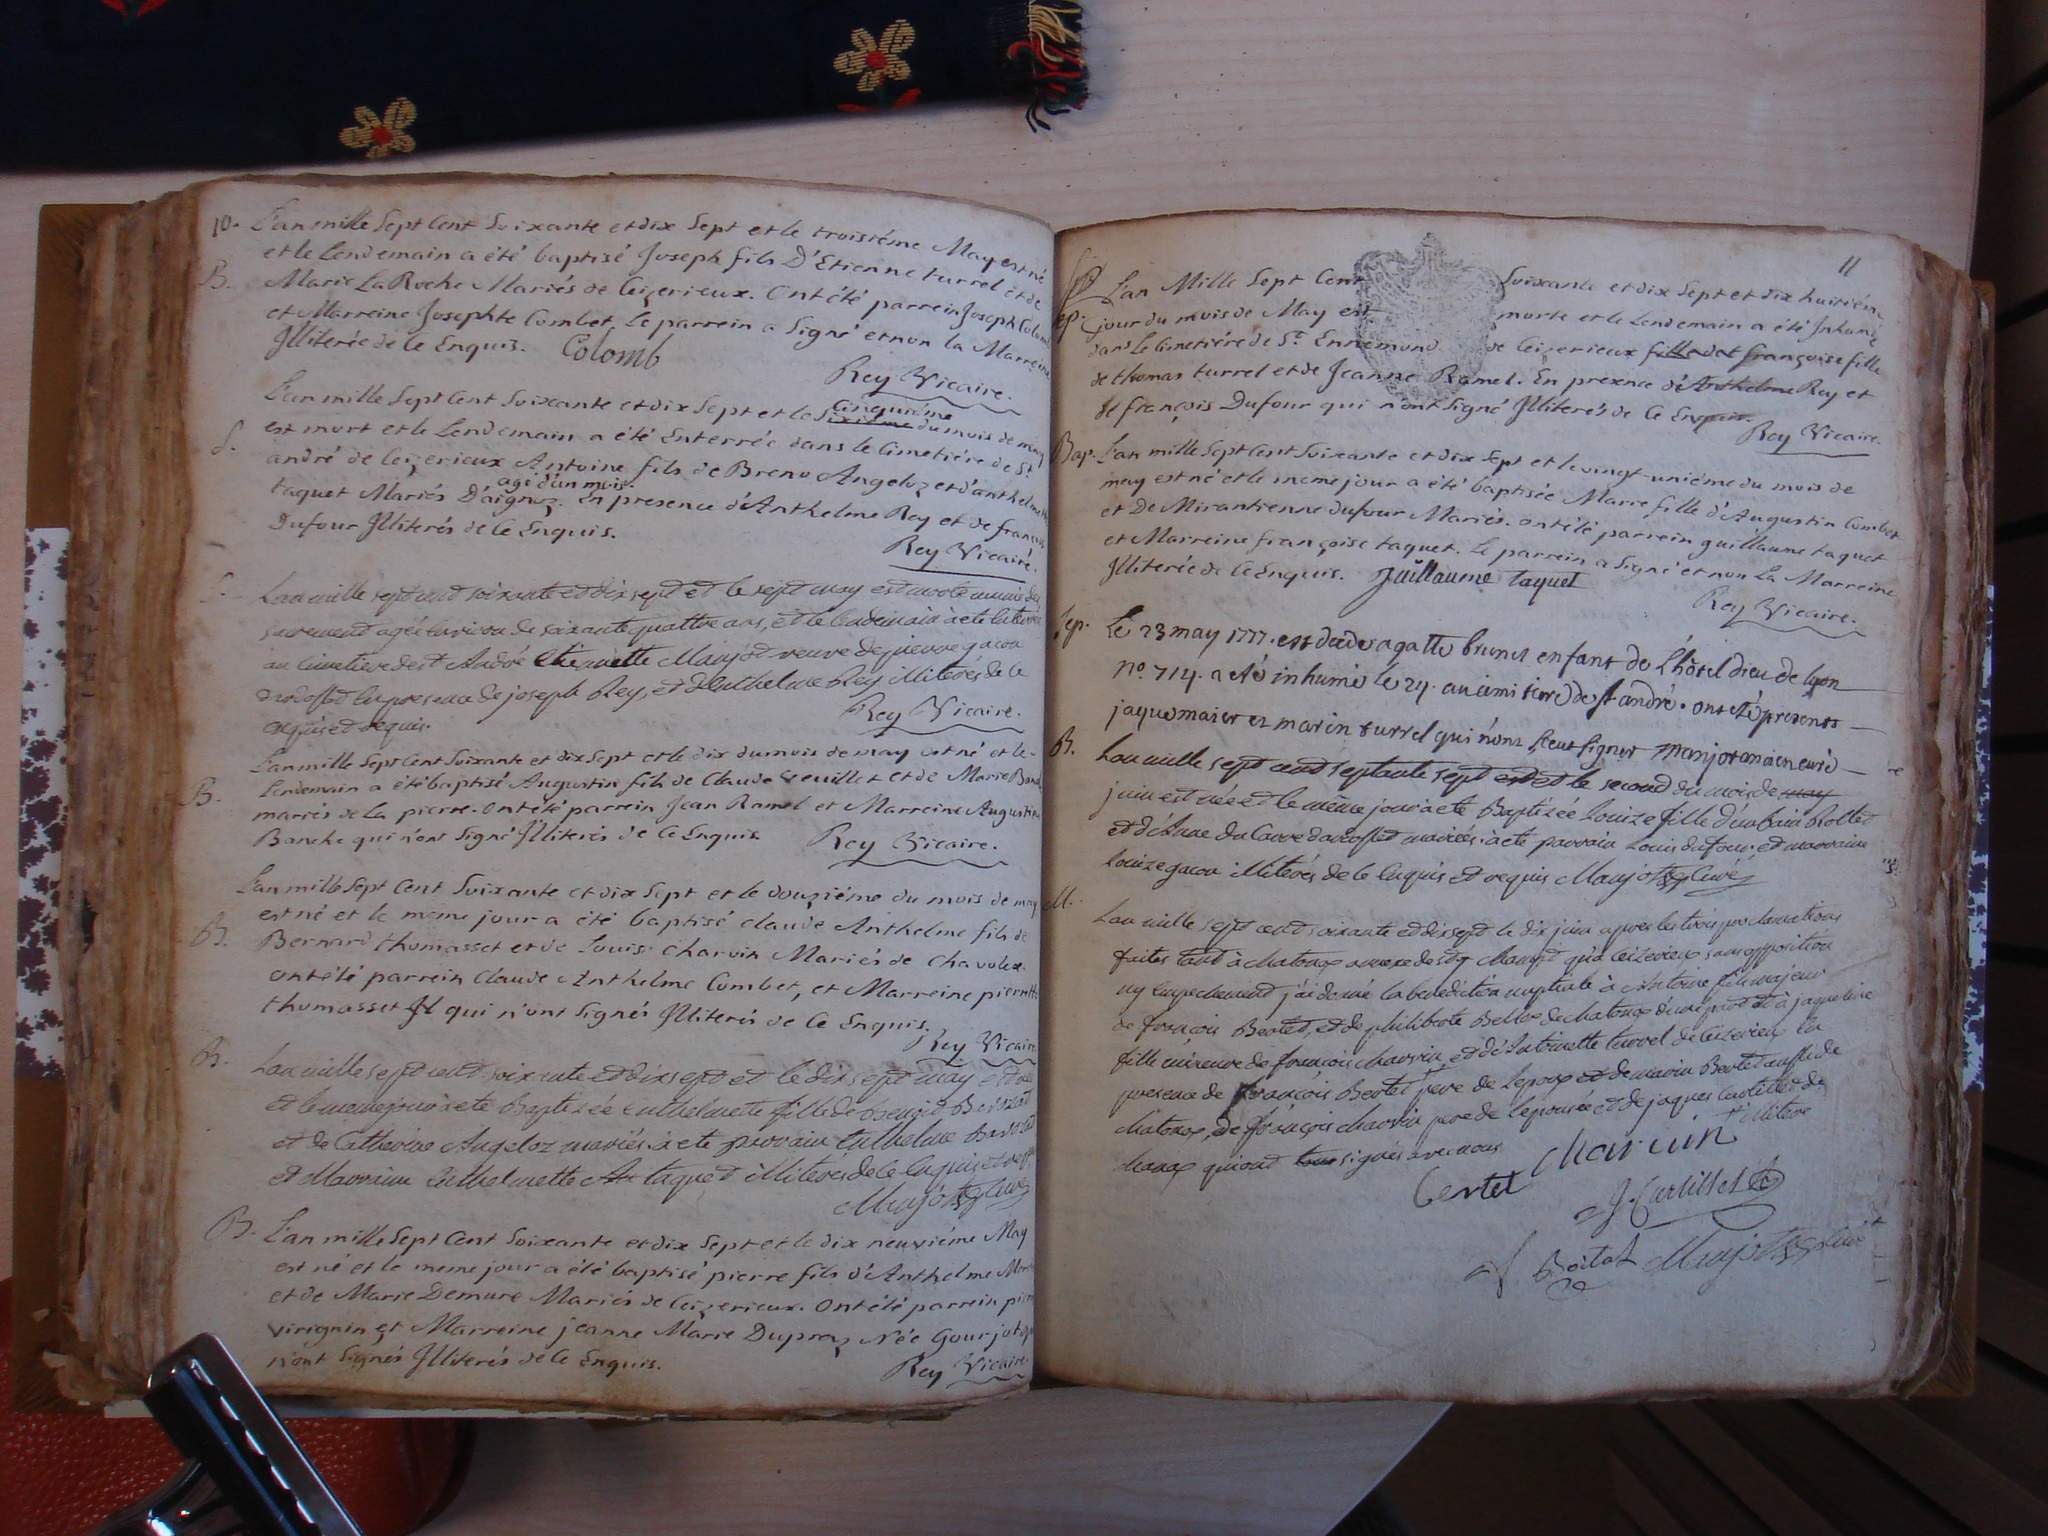 10. L'an mille Sept Cent Soixante et dix Sept et le troisiéme May est né
et le Lendemain a été baptisé Joseph fils D'Etienne turrel et de
B. Marie La Roche Mariés de Ceizerieux. Ont été parrein Joseph Colomb
et Marreine Josephte Combet Le parrein a Signé et non la Marreine
Illiterée de ce Enquis. Colomb
Rey Vicaire.
L'an mille Sept Cent Soixante et dix Sept et le Sixiéme cinquiéme du mois de may
S. est mort et le Lendemain a été Enterrée dans le Cimetiére de St
andré de Ceizerieux Antoine fils de Breno Angeloz et d'anthelmette
agé d'un mois.
taquet Mariés D'aignoz. En presence d'Anthelme Rey et de françois
Dufour Illiterés de Ce Enquis.
Rey Vicaire.
S. L'an mille sept cent soixante et dix sept et le sept may est morte munie des
sacrement agée environ de soixante quattre ans, et le lendemain à eté enterrée
au cimetiere de st André Etiennette Manjot veuve de pierre gacon
en presence de joseph Rey, et d'Anthelme Rey illiterés de ce
enquis et requis.
Rey Vicaire.
L'an mille Sept Cent Soixante et dix Sept et le dix du mois de may est né et le
Lendemain a été baptisé Augustin fils de Claude veuillet et de Marie Banche
B. mariés de La pierre. Ont été parrein Jean Ramel et Marreine Augustine
Banche qui n'ont Signé Illiterés de Ce Enquis Rey Vicaire.
L'an mille Sept Cent Soixante et dix Sept et le douziéme du mois de may
est né et le meme jour a été baptisé claude Anthelme fils de
B. Bernard thomasset et de Louise Charvin Mariés de Chavolex.
ont été parrein Claude Anthelme Combet, et Marreine pierrette
thomasset Il qui n'ont Signés Illiterés de Ce Enquis.
Rey Vicaire
B. L'an mille sept cent soixante et dix sept et le dix sept may est née
et le meme jour à eté Baptizée Anthelmette fille de Benoit
et de Catherine Angeloz mariés. à eté parrain Anthelme
et Marraine Anthelmette taquet illiterés de ce enquis et
Manjot curé
B. L'an mille Sept Cent Soixante et dix Sept et le dix neuviéme May
est né et le meme jour a été baptisé pierre fils d'Anthelme
et de Marie Demure Mariés de Ceizerieux. Ont été parrein pierre
virignin et Marreine jeanne Marie Duprez Née Gourjot qui
n'ont Signés Illiterés de Ce Enquis.
Rey Vicaire.
11
Sep. L'an Mille Sept Cent Soixante et dix Sept et dix huitiéme
jour du mois de May est morte et le Lendemain a été Inhumée
dans Le Cimetiére de St. Ennemond de Ceizerieux fille de françoise fille
de thomas turrel et de Jeanne Ramel. En presence d'Anthelme Rey et
de françois Dufour qui n'ont Signé Illiterés de Ce Enquis.
Rey Vicaire.
Bap. L'an mille Sept Cent Soixante et dix Sept et le vingt-uniéme du mois de
may est né et le meme jour a été baptisée Marie fille d'Augustin Combet
et De Mirantienne dufour Mariés. ont été parrein guillaume taquet
et Marreine françoise taquet. Le parrein a Signé et non La Marreine
Illiterée de Ce Enquis. Guillaume taquet
Rey Vicaire.
Sep. Le 23 may 1777. est decedé agatte brunet enfant de L'hôtel dieu de lyon
no. 714. a eté inhumé le 24. au cimitiere de st andré. ont eté presents
jaque maier et marin turrel qui n'ont sceut signer manjot ancien curé
B. L'an mille sept cent septante sept et le second du mois de may
juin est née et le même jour à eté Baptizée Louize fille d'urbain
et d'Anne mariés. à eté parrain Louis dufour et marraine
Louize gacon illiterés de ce enquis et requis Manjot curé
M. L'an mille sept cent soixante et dix sept le dix juin apres les trois proclamations
faites tant à Chatonox annexe de qu'à Ceizerieux sans opposition
ny empechement j'ai donné la benediction nuptiale à Antoine fils majeur
de françois Bertet, et de philiberte de Chatonox d'une part et à jaqueline
fille mineure de françois charvin et d'Antoinette turrel de Ceizerieux en
presence de françois Bertet pere de l'epoux et de marin Bertet aussi de
Chatonox, de françois charvin pere de l'epousée et de jaques Curtillet de
qui ont signés avec nous
Bertet Charvin
J. Curtillet
Manjot curé